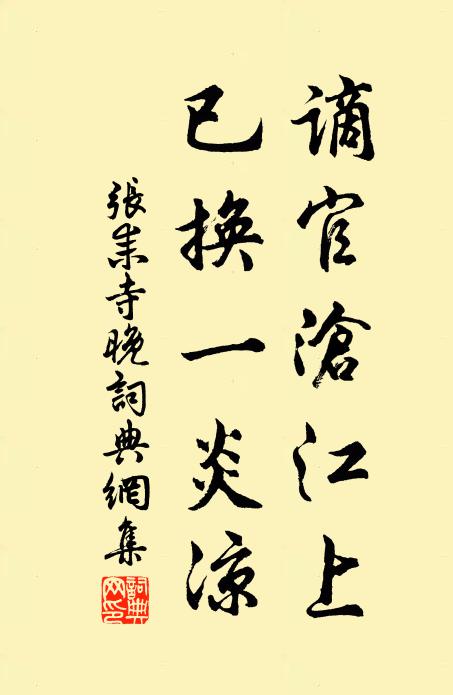 謫官滄江上
已換一炎涼
張耒寺晚詞典網集
詞典
网印